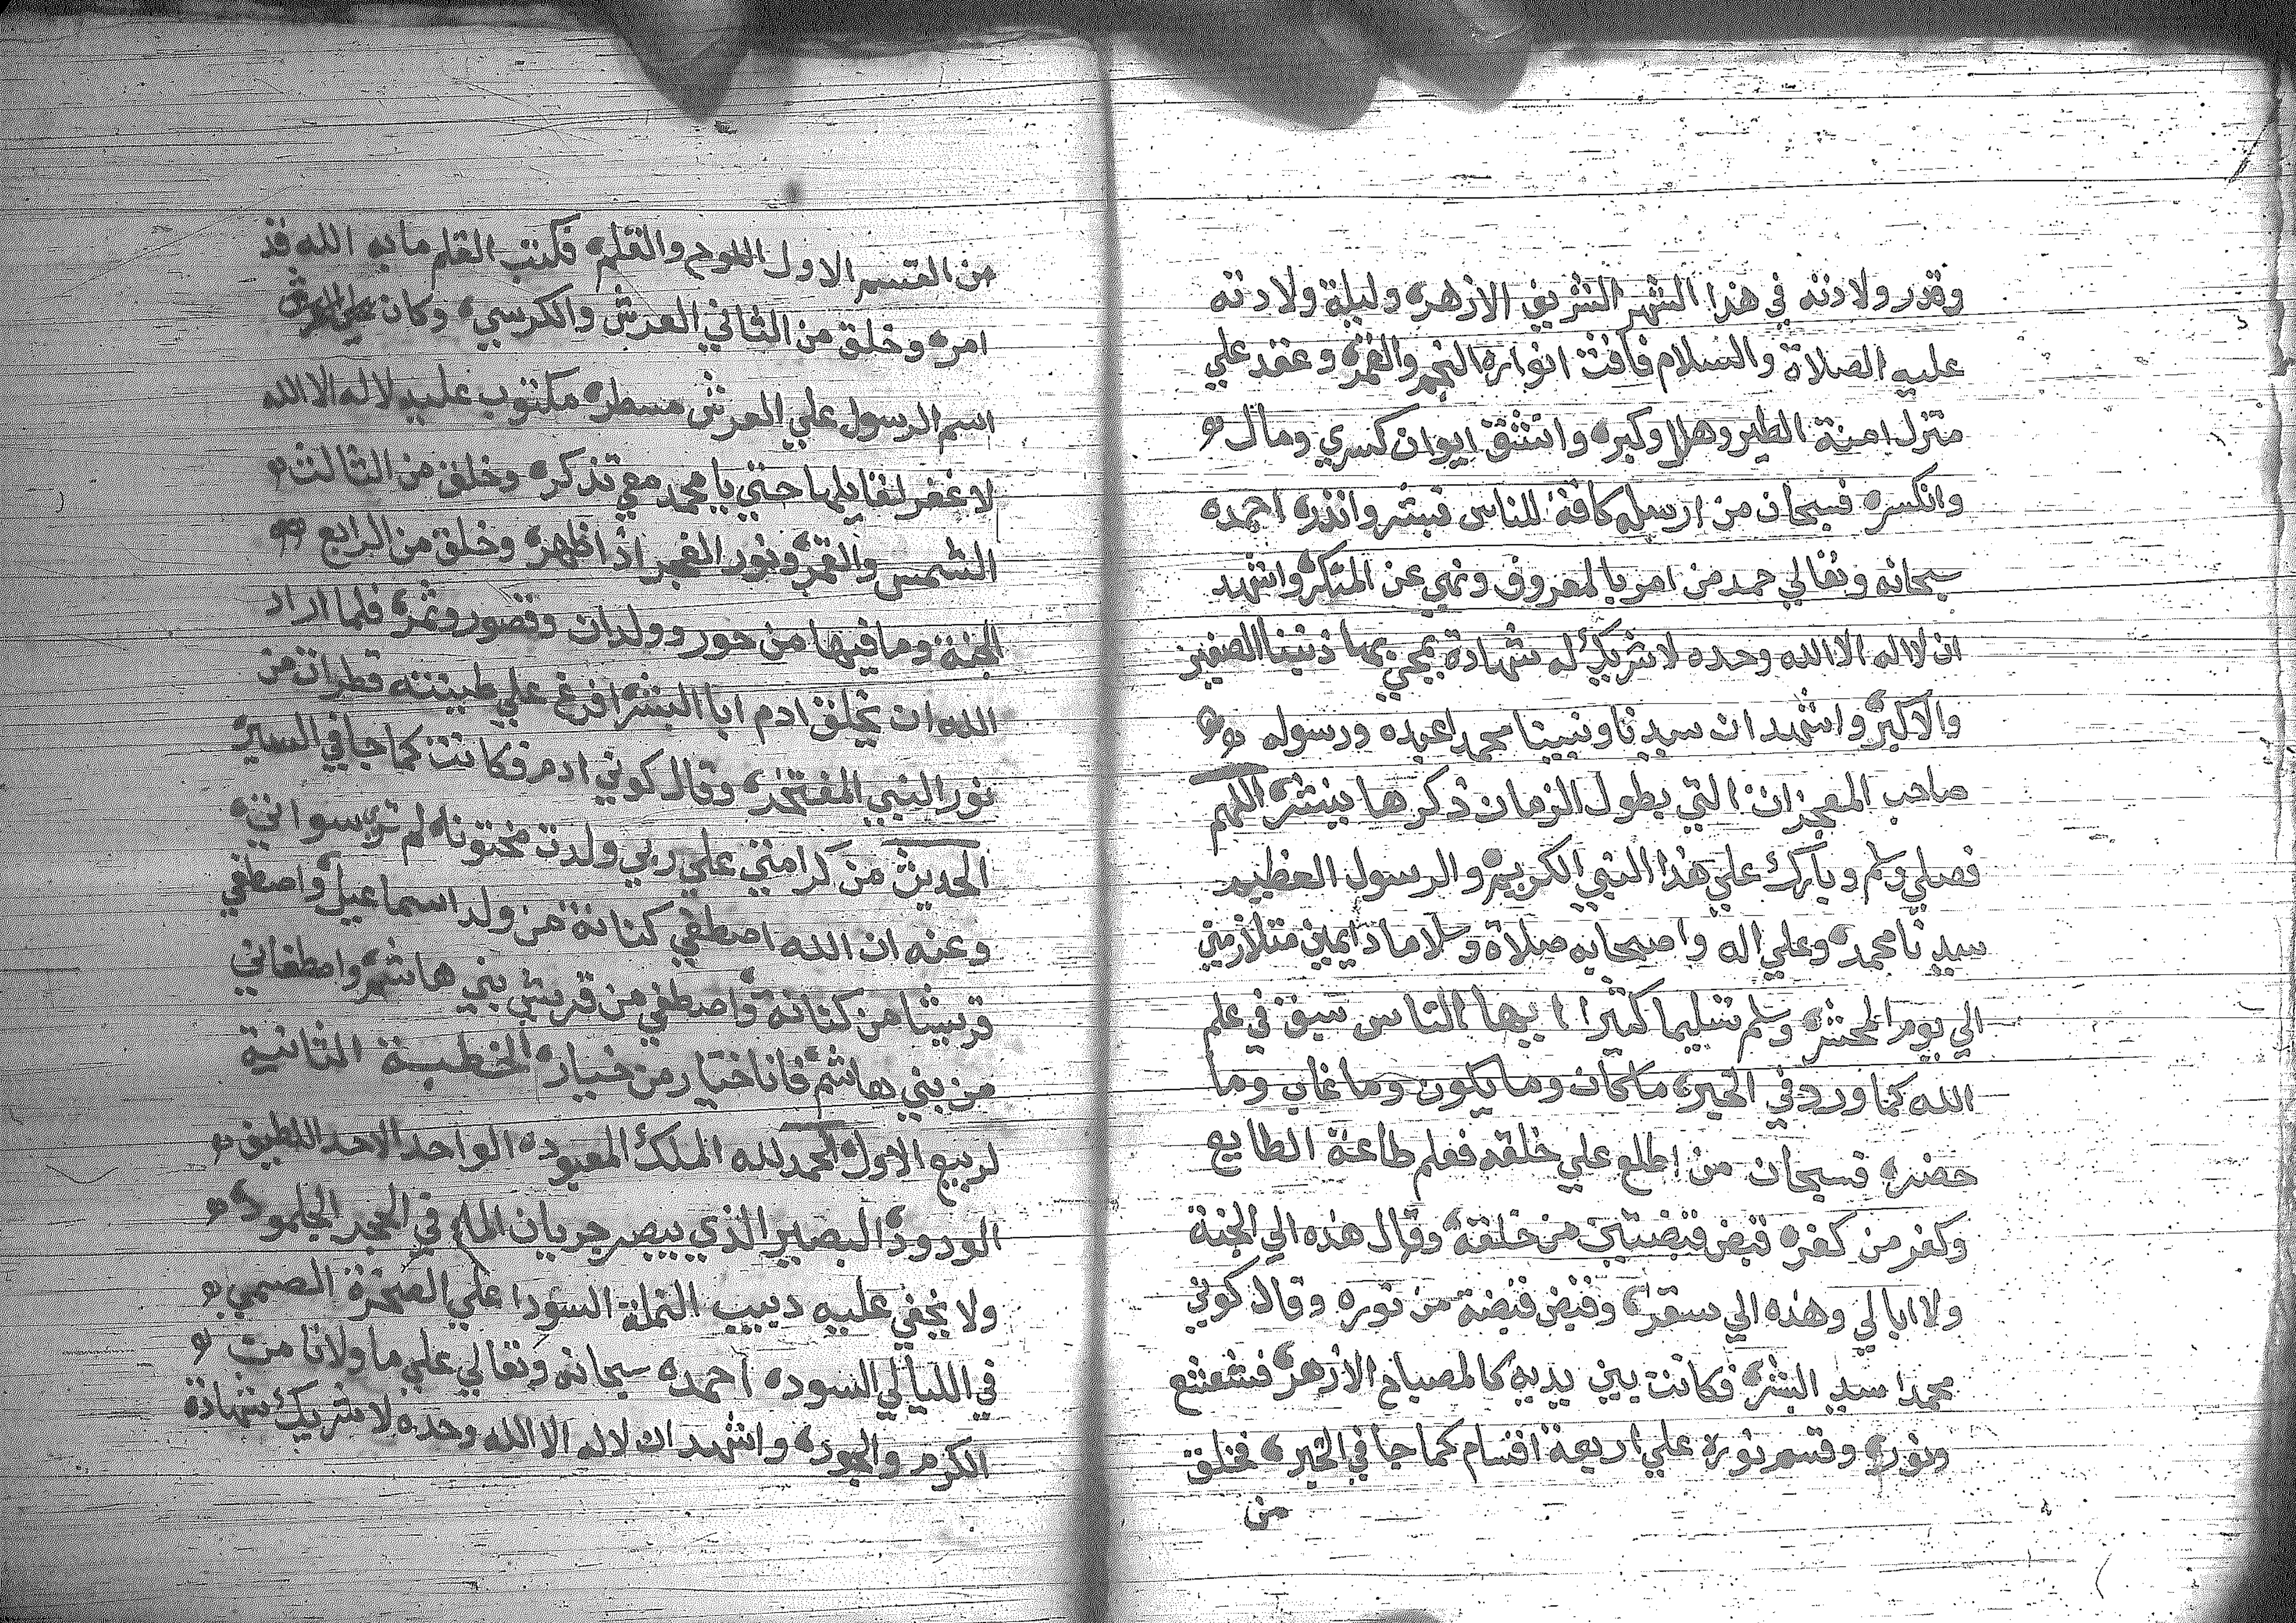 وقدر ولادته في هذا الشهر الشريف الازهر وليلة ولادته
عليه الصلاة والسلام فاقت انواره النجم والقمر وعقد علي
منزل امنة الطير وهلل وكبر وانشق ايوان كسري ومال
وانكسر فسبحان من ارسله كافة للناس فبشر وانذر احمده
سبحانه وتعالي حمد من امر بالمعروف ونهي عن المنكر واشهد
ان لا اله الا الله وحده لا شريك له شهادة يمحي بها ذنبنا الصغير
والاكبر واشهد ان سيدنا ونبينا محمدا عبده ورسوله
صاحب المعجزات التي بطول الزمان ذكرها ينشر اللهم
فصلي وسلم وبارك علي هذا النبي الكريم والرسول العظيم
سيدنا محمد وعلي اله واصحابه صلاة وسلاما دايمين متلازمين
الي يوم المحشر وسلم تسليما كثيرا ايها الناس سبق في علم
الله كما ورد في الخبر ما كان وما يكون وما غاب وما
حضر فسبحان من اطلع علي خلقه فعلم طاعة الطايع
وكفر من كفر قبض قبضتين من خلقه وقال هذه الي الجنة
ولا ابالي وهذه الي سقر وقبض قبضة من نوره وقال كوني
محمدا سيد البشر فكانت بين يديه كالمصباح الازهر فشعشع
ونور وقسم نوره علي اربعة اقسام كما جا في الخبر فخلق
من
من القسم الاول اللوح والقلم فكتب القلم ما به الله قد
امر وخلق من الثاني العرش والكرسي وكان علي العرش
اسم الرسول علي العرش مسطر مكتوب عليه لا اله الا الله
لا غفر لقايلها حتي يا محمد معي تذكر وخلق من الثالث
الشمس والقمر ونور الفجر اذا ظهر وخلق من الرابع
الجنة وما فيها من حور وولدان وقصور وثمر فلما اراد
الله ان يخلق ادم ابا البشر افرغ علي طينته قطرات من
نور النبي المفتخر وقال كوني ادم فكانت كما جا في السير
الحديث من كرامتي علي ربي ولدت مختونا لم تري سواتي
وعنه ان الله اصطفي كنانة من ولد اسماعيل واصطفي
قريشا من كنانة واصطفي من قريش بني هاشم واصطفاني
من بني هاشم فانا خيار من خيار الخطبة الثانية
لربيع الاول الحمد لله الملك المعبود الواحد الاحد اللطيف
الودود البصير الذي يبصر جريان الماء في الحجر الجلمود
ولا يخفي عليه دبيب النملة السودا علي الصخرة الصمي
في الليالي السود احمده سبحانه وتعالي علي ما ولانا من
الكرم والجود واشهد ان لا اله الا الله وحده لا شريك شهادة